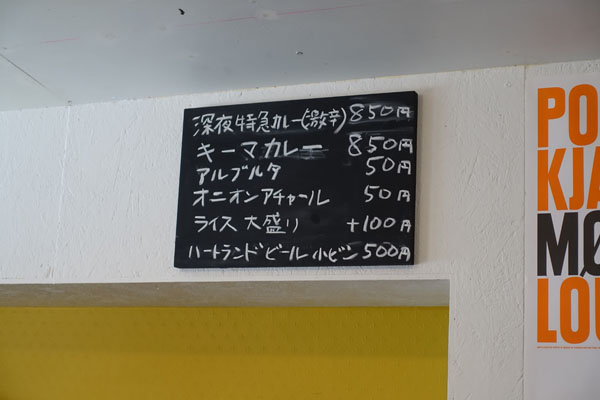 深夜特急カレー(激辛) 850円
キーマカレー 850円
アルブルタ 50円
オニオンアチャール 50円
ライス大盛り +100円
ハートランドビール 小ビン 500円
PO
KJA
MØ
LOU